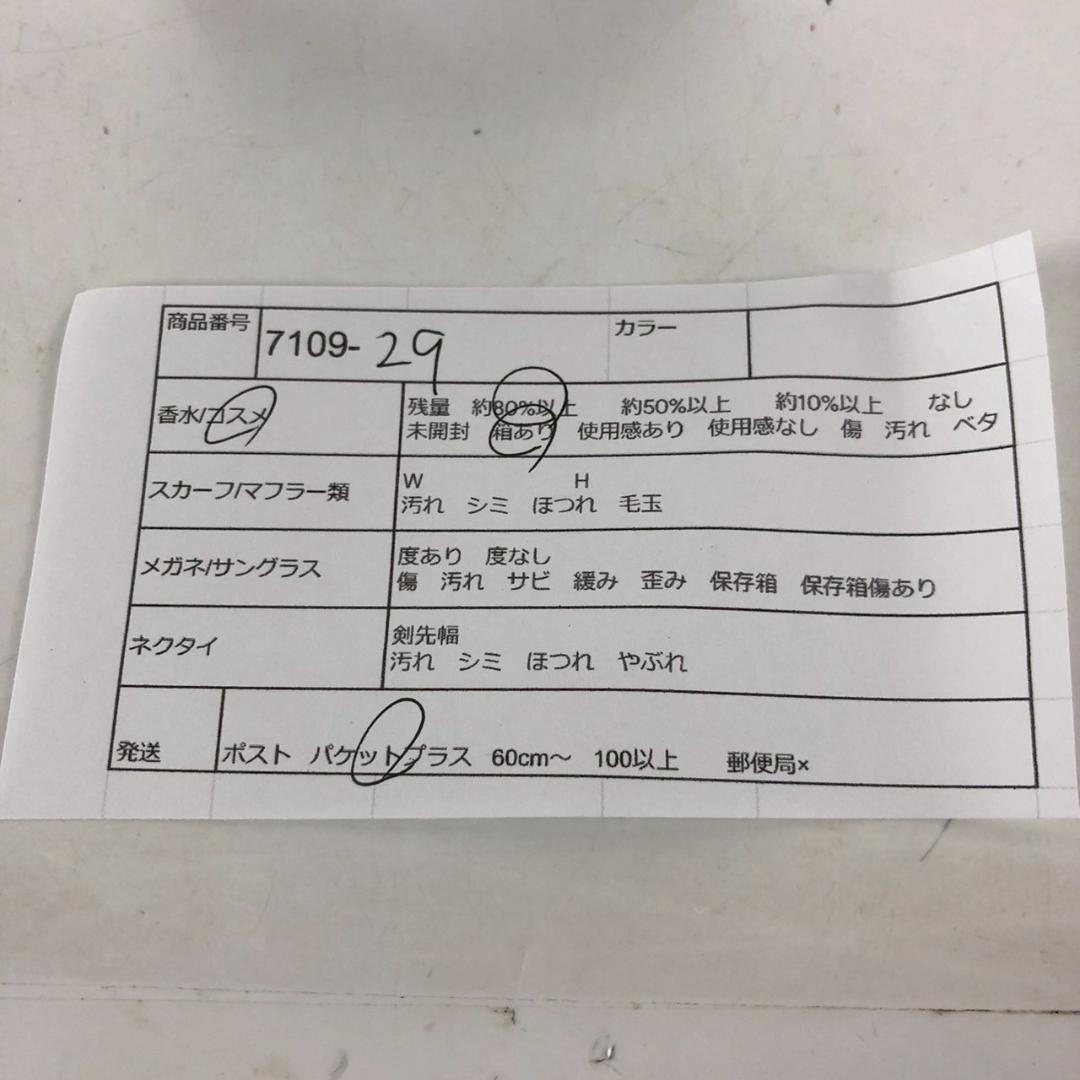 商品番号 7109-29 カラー
香水/コスメ 残量 約80%以上 約50%以上 約10%以上 なし
未開封 箱あり 使用感あり 使用感なし 傷 汚れ ベタ
スカーフ/マフラー類 W H
汚れ シミ ほつれ 毛玉
メガネ/サングラス 度あり 度なし
傷 汚れ サビ 緩み 歪み 保存箱 保存箱傷あり
ネクタイ 剣先幅
汚れ シミ ほつれ やぶれ
発送 ポスト パケットプラス 60cm〜 100以上 郵便局×